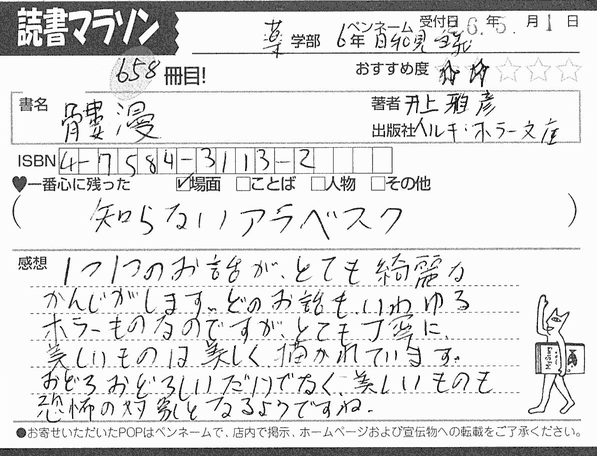 読書マラソン
658冊目!
薬学部 6年 ペンネーム 月和見 受付日 6年5.月1日
おすすめ度 ☆☆☆
書名 髏漫
著者 井上雅彦
出版社 ハルキ・ホラー文庫
ISBN 4-7584-3113-2
♥一番心に残った ☑場面 □ことば □人物 □その他
(知らないアラベスク)
感想 1つ1つのお話が、とても綺麗な
かんじがします。どのお話も、いわゆる
ホラーものなのですが、とても丁寧に、
美しいものは美しく描かれています。
おどろおどろしいだけでなく、美しいものも
恐怖の対象となるようですね。
●お寄せいただいたPOPはペンネームで、店内で掲示、ホームページおよび宣伝物への転載をご了承ください。